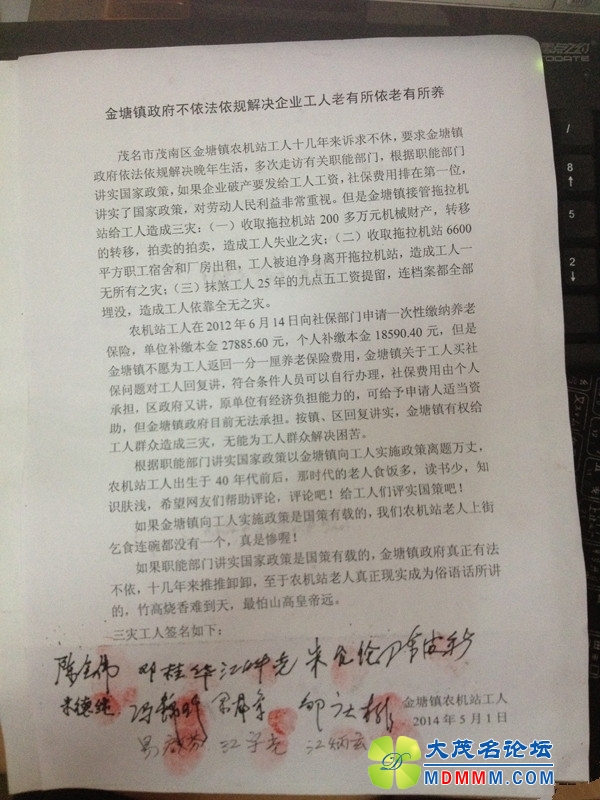 金塘镇政府不依法依规解决企业工人老有所依老有所养
茂名市茂南区金塘镇农机站工人十几年来诉求不休，要求金塘镇
政府依法依规解决晚年生活，多次走访有关职能部门，根据职能部门
讲实国家政策，如果企业破产要发给工人工资，社保费用排在第一位，
讲实了国家政策，对劳动人民利益非常重视。但是金塘镇接管拖拉机
站给工人造成三灾：（一）收取拖拉机站 200 多万元机械财产，转移
的转移，拍卖的拍卖，造成工人失业之灾；（二）收取拖拉机站 6600
平方职工宿舍和厂房出租，工人被迫净身离开拖拉机站，造成工人一
无所有之灾；（三）抹煞工人 25 年的九点五工资提留，连档案都全部
埋没，造成工人依靠全无之灾。
农机站工人在 2012 年 6 月 14 日向社保部门申请一次性缴纳养老
保险，单位补缴本金 27885.60 元，个人补缴本金 18590.40 元，但是
金塘镇不愿为工人返回一分一厘养老保险费用，金塘镇关于工人买社
保问题对工人回复讲，符合条件人员可以自行办理，社保费用由个人
承担，区政府又讲，原单位有经济负担能力的，可给予申请人适当资
助，但金塘镇政府目前无法承担。按镇、区回复讲实，金塘镇有权给
工人群众造成三灾，无能为工人群众解决困苦。
根据职能部门讲实国家政策以金塘镇向工人实施政策离题万丈，
农机站工人出生于 40 年代前后，那时代的老人食饭多，读书少，知
识肤浅，希望网友们帮助评论，评论吧！给工人们评实国策吧！
如果金塘镇向工人实施政策是国策有载的，我们农机站老人上街
乞食连碗都没有一个，真是惨喔！
如果职能部门讲实国家政策是国策有载的，金塘镇政府真正有法
不依，十几年来推推卸卸，至于农机站老人真正现实成为俗语话所讲
的，竹高烧香难到天，最怕山高皇帝远。
三灾工人签名如下：
邓桂华
朱德纯
江炳
金塘镇农机站工人
2014 年 5 月 1 日
大茂名论坛
MDMMM.COM